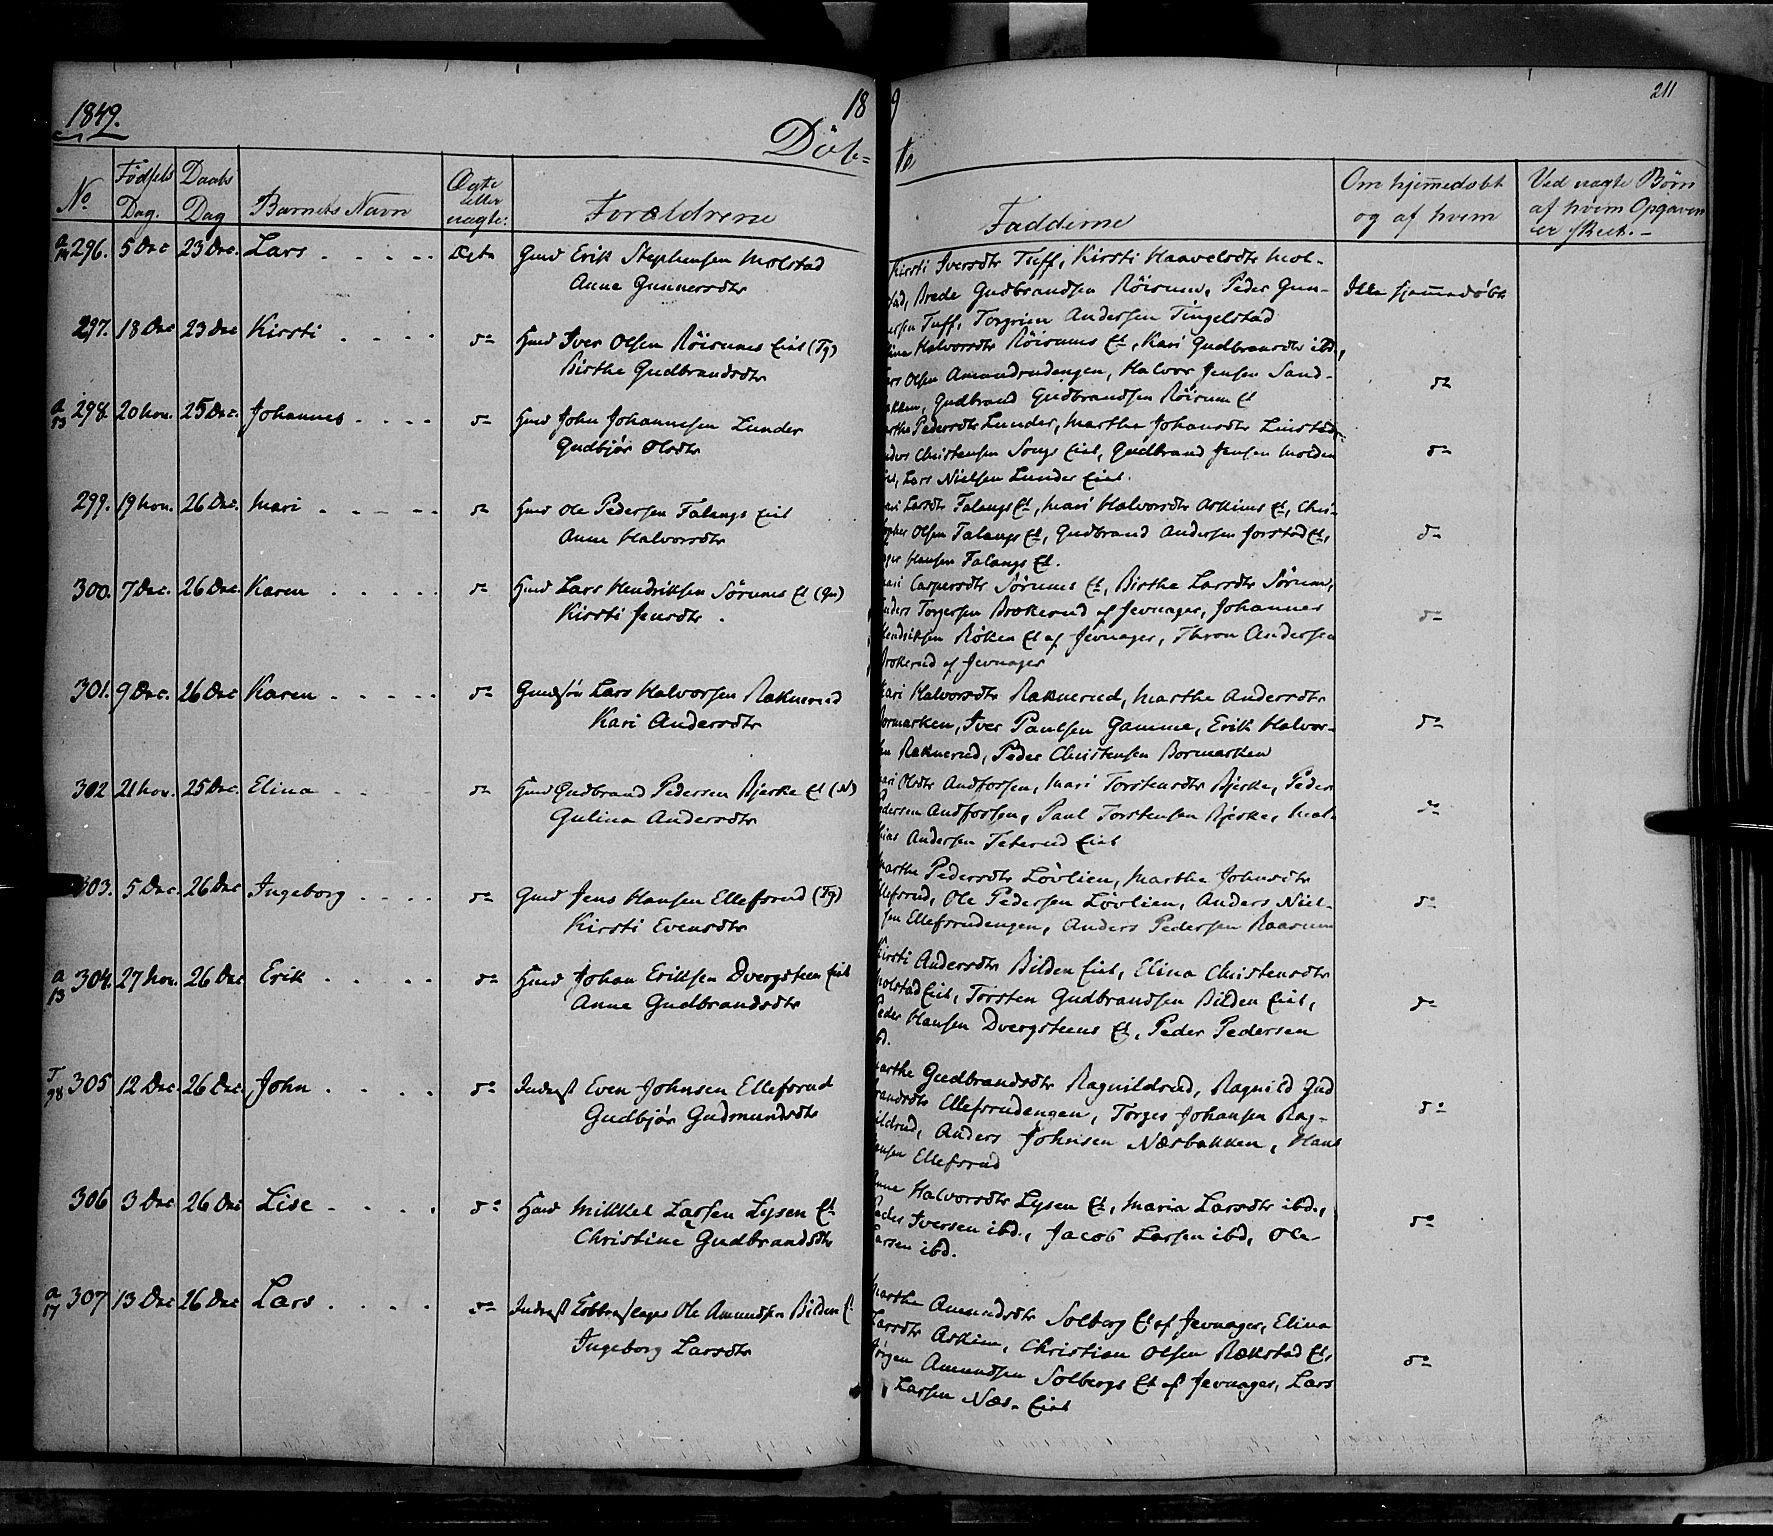 1849.
18
9
211
Döb=
te
No
Fødsels
Dag.
Daabs
Dag
Barnets Navn
Ægte
eller
uægte.
Forældrene
Fadderne
Om hjemmedøbt
og af hvem
Ved uægte Børn
af hvem Opgaven
er skeet.-
a
14 296. 5 Dec 23 Dec. Lars . . . . . Ægte Gmd Erik Stephensen Molstad
Anne Gunnersdtr
Kirsti Iversdtr Tuff, Kirsti Haavelsdtr Mol-
stad, Brede Gudbrandsen Röisum, Peder Gun-
ersen Tuff, Torgrien Andersen Tingelstad
Ikke hjemmedöbt
297. 18 Dec 23 Dec Kirsti . . . . do Hmd Iver Olsen Röisums Eiet (Tg)
Birthe Gudbrandsdtr
Halvorsdtr Röisums Et, Kari Gudbrandsdtr ibd,
Lars Olsen Amundrudengen, Halvor Jensen Sand-
bakken, Gudbrand Gudbrandsen Röisum Et
do
a
13 298. 20 Nov. 25 Dec. Johannes . . . . do Hmd John Johannesen Lunder
Gudbjør Olsdtr
Marthe Pedersdtr Lunder, Marthe Johansdtr Linstad
Anders Christensen Songe Eiet, Gudbrand Jensen Molden
Lars Nielsen Lunder Eiet.
do
299. 19 Nov. 26 Dec. Mari . . . . . do Hmd Ole Pedersen Falangs Eiet
Anne Halvorsdtr
Mari Larsdtr Falangs Et, Mari Halvorsdtr Askims Et, Chri-
stopher Olsen Falangs Et, Gudbrand Andersen Jorstad Et,
Hansen Falangs Et.
do
300. 7 Dec. 26 Dec. Karen . . . . . do Hmd Lars Hendriksen Sörums Et (Gn)
Kirsti Jensdtr .
Mari Caspersdtr Sörums Et, Birthe Larsdtr Sörum,
Anders Torgersen Brökerud af Jevnager, Johannes
Hendriksen Röken Et af Jevnager, Thron Andersen
Brokerud af Jevnager
do
301. 9 Dec. 26 Dec Karen . . . . . do Gmdsön Lars Halvorsen Raknerud
Kari Andersdtr
Kari Halvorsdtr Raknerud, Marthe Andersdtr
Bormarken, Iver Paulsen Gamme, Erik Halvor-
sen Raknerud, Peder Christensen Bormarken
do
302 21 Nov. 25 Dec. Elina . . . . . do Hmd Gudbrand Pedersen Bjerke Et (N)
Gulina Andersdtr
Mari Olsdtr Andfossen, Mari Torstensdtr Bjerke, Peder
Pedersen Andfossen, Paul Torstensen Bjerke, Mat-
hias Andersen Teterud Eiet
do
303. 5 Dec. 26 Dec Ingeborg . . . . do Gmd Jens Hansen Ellefsrud (Tg)
Kirsti Evensdtr
Marthe Pedersdtr Lövlien, Marthe Johnsdtr
Ellefsrud, Ole Pedersen Lövlien, Anders Niel-
sen Ellefsrudengen, Anders Pedersen Raasum
do
a
13 304. 27 Nov. 26 Dec Erik . . . . do Hmd Johan Eriksen Dvergsteen Eiet
Anne Gudbrandsdtr
Kirsti Andersdtr Bilden Eiet, Elina Christensdtr
Molstad Eiet, Torsten Gudbrandsen Bilden Eiet,
Peder Hansen Dvergsteens Et, Peder Pedersen
ibd.
do
T
98 305 12 Dec. 26 Dec John . . . . do Inderst Even Johnsen Ellefsrud
Gudbjør Gudmundsdtr
Marthe Gudbrandsdtr Ragnildrud, Ragnild Gud
brandsdtr Ellefsrudengen, Torger Johansen Rag-
nildrud, Anders Johnsen Næsbakken, Hans
Hansen Ellefsrud
do
306 3 Dec 26 Dec Lise . . . . do Hmd Mikkel Larsen Lysen Et
Christine Gudbrandsdtr
Anne Halvorsdtr Lysen Et, Maria Larsdtr ibd.,
Peder Iversen ibd., Jacob Larsen ibd, Ole
Larsen ibd.
do
a
17 307 13 Dec 26 Dec Lars . . . . do Inderst Ole Amundsen Bilden E
Ingeborg Larsdtr
Marthe Amundsdtr Solberg Et af Jevnager, Elina
Larsdtr Askim, Christian Olsen Rækstad Et,
Jörgen Amundsen Solbergs Et af Jevnager, Lars
Larsen Næs. Eiet
do